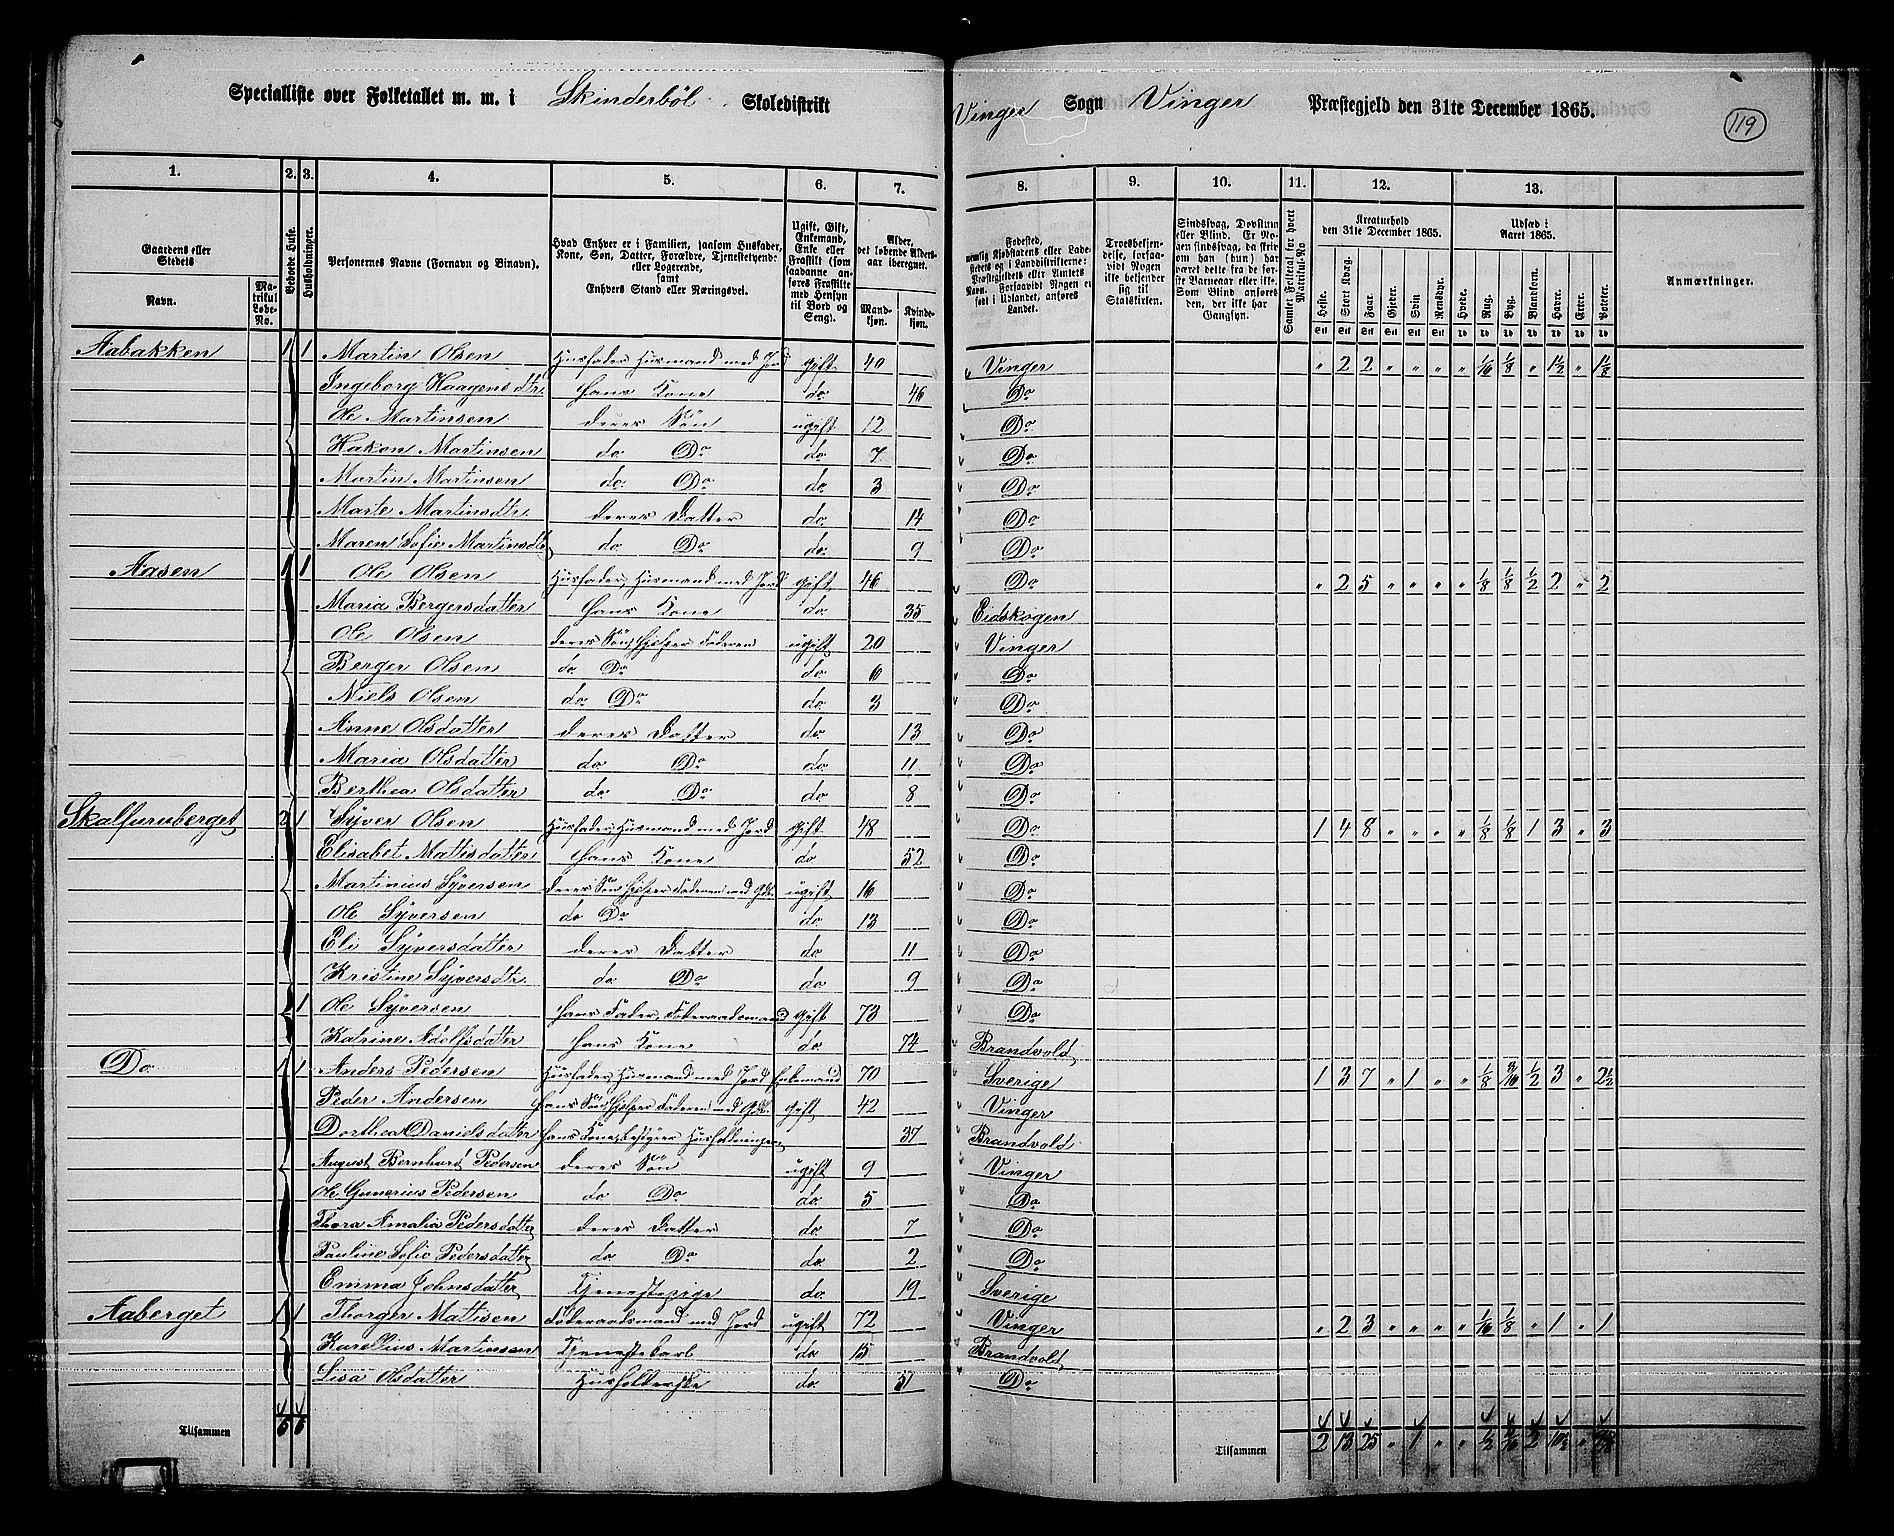 Specialliste over Folketallet m. m. i Skinderböl Skoledistrikt Vinger Sogn Vinger Præstegjeld den 31te December 1865.
119
1. 2. 3. 4. 5. 6. 7. 8. 9. 10. 11. 12. 13.
Gaardens eller Stedets
Navn.
Matrikul Løbe-No.
Beboede Huse.
Husholdninger.
Personernes Navne (Fornavn og Binavn).
Hvad Enhver er i Familien, saasom Husfader, Kone, Søn, Datter, Forældre, Tjenestetyende eller Logerende, samt Enhvers Stand eller Næringsvei.
Ugift, Gift, Enkemand, Enke eller Fraskilt (som saadanne anføres Fraskilte med Hensyn til Bord og Seng).
Alder, det løbende Aldersaar iberegnet.
Mandkjøn. Kvindekjøn.
Fødested, nemlig Kjøbstadens eller Ladestedets og i Landdistrikterne: Præstegjeldets eller Amtets Navn. Forsaavidt Nogen er født i Udlandet, anføres Landet.
Troesbekjendelse, forsaavidt Nogen ikke bekjender sig til Statskirken.
Sindssvag, Døvstum eller Blind. Er Nogen sindssvag, da skrives om han (hun) har været dette fra de første Barneaar eller ikke. Som Blind anføres den, der ikke har Gangsyn.
Samlet Folketal for hvert Matrikul-No
Kreaturhold den 31te December 1865.
Heste. Stort Kvæg. Faar. Gjeder. Svin Rensdyr.
Udsæd i Aaret 1865.
Hvede. Rug. Byg. Blandkorn. Havre. Erter. Poteter.
Anmærkninger.
Aabakken 1 1 Martin Olsen Husfader Husmand med Jord gift 40 Vinger " 2 2 " " " " 1/16 1/8 " 1 1/2 " 1 1/8
Ingeborg Haagensdtr. hans Kone do 46 Do
Ole Martinsen deres Søn ugift 12 Do
Hakon Martinsen do Do do 7 Do
Martin Martinsen do. Do do. 3 Do
Marte Martinsdtr. deres Datter do 14 Do
Maren Sofie Martinsdtr do Do do. 9 Do
Aasen 1 1 Ole Olsen Husfader, Husmand med Jord gift 46 Do " 2 5 " " " " 1/8 1/8 1/2 2 " 2
Maria Bergersdatter hans Kone do. 35 Eidskogen
Ole Olsen deres Søn hjelper Faderen ugift 20 Vinger
Berger Olsen do Do do 6 Do
Niels Olsen do Do do 3 Do
Anne Olsdatter deres Datter do. 13 Do
Maria Olsdatter do Do do 11 Do
Berthea Olsdatter do Do do 8 Do
Skalfuruberget 2 1 Syver Olsen Husfader, Husmand med Jord gift 48 Do 1 4 8 " " " " 1/8 1/8 1 3 " 3
Elisabet Mattisdatter hans Kone do 52 Do
Martinius Syversen deres Søn hjelper Faderen med Gdbr. ugift 16 Do
Ole Syversen do Do do. 13 Do
Eli Syversdatter deres Datter do 11 Do
Kristine Syversdtr. do Do do 9 Do
1 Ole Syversen hans Fader, Føderaadsmand gift 73 Do
Katrine Adolfsdatter hans Kone do. 74 Brandvold
Do 1 1 Anders Pedersen Husfader, Husmand med Jord Enkemand 70 Sverige 1 3 7 " 1 " " 1/8 3/16 1/2 3 " 2 1/2
Peder Andersen hans Søn hjelper Faderen med Gdbr. gift 42 Vinger
Dorthea Danielsdatter hans Kone, bestyrer Husholdningen 37 Brandvold
August Bernhard Pedersen deres Søn ugift 9 Vinger
Ole Gunerius Pedersen do Do do 5 Do
Thora Amalia Pedersdatter deres Datter do. 7 Do
Pauline Sofie Pedersdatter do Do do. 2 Do
Emma Johnsdatter Tjenestepige do. 19 Sverige
Aaberget 1 1 Thorger Mattisen Føderaadsmand med Jord ugift 72 Vinger " 2 3 " " " " 1/16 1/8 " 1 " 1
Karellius Martinsen Tjenestekarl do 15 Brandvold
Lisa Olsdatter Husholderske do. 51 Do
Tilsammen 6 6 Tilsammen 2 13 25 " 1 " " 1/2 2 10 1/2 "